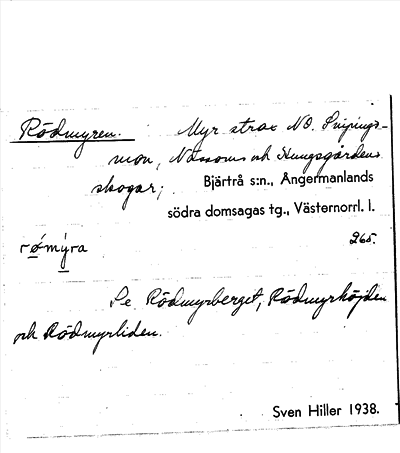 Rödmyren. Myr strax NO. Snipings-
mon, Nässoms och Kungsgårdens
skogar;
Bjärtrå s:n., Ångermanlands
södra domsagas tg., Västernorrl. l.
265.
rǿmỳra
Se Rödmyrberget, Rödmyrhöjden
och Rödmyrliden.
Sven Hiller 1938.